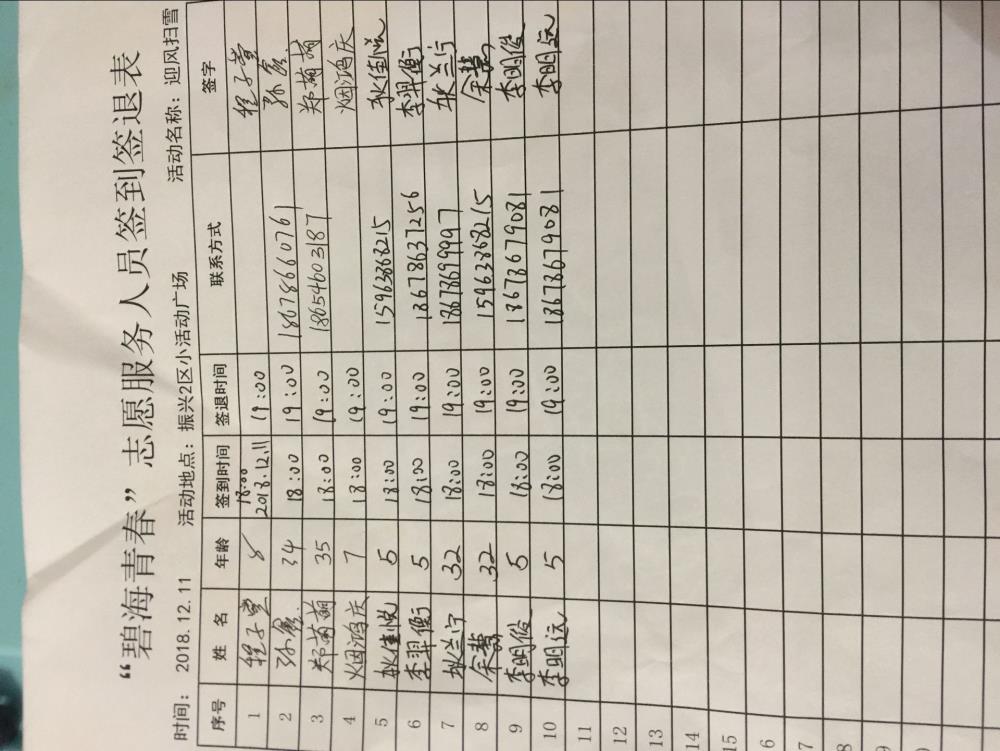 “碧海青春”志愿服务人员签到签退表
时间: 2018.12.11 活动地点: 振兴2区小活动广场 活动名称: 迎风扫雪
序号 姓名 年龄 签到时间 签退时间 联系方式 签字
1 程子萱 8 18:00 2018.12.11 19:00 程子萱
2 孙鑫 34 18:00 19:00 18678660761 孙鑫
3 郑萌萌 35 18:00 19:00 18654603187 郑萌萌
4 烟鸿庆 7 18:00 19:00 烟鸿庆
5 耿佳悦 5 18:00 19:00 15963868215 耿佳悦
6 李羿衡 5 18:00 19:00 18678637256 李羿衡
7 耿兰宁 32 18:00 19:00 18678699997 耿兰宁
8 余慧 32 18:00 19:00 15963868215 余慧
9 李明俊 5 18:00 19:00 18678679081 李明俊
10 李明远 5 18:00 19:00 18678679081 李明远
11
12
13
14
15
6
7
8
9